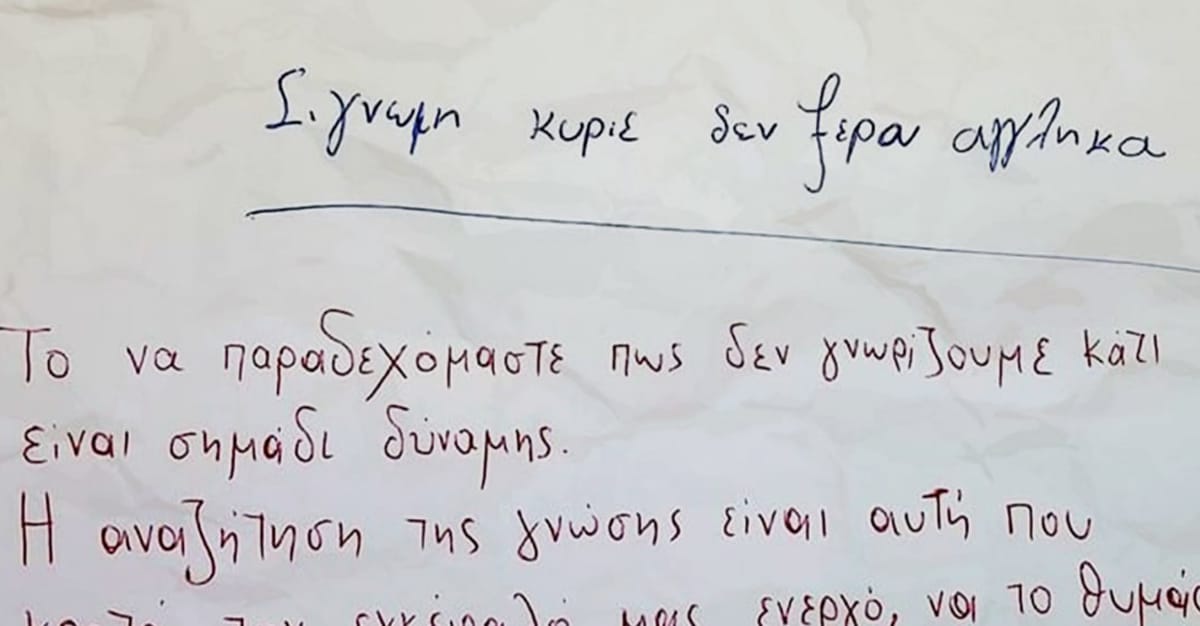 Σιγνωμη κυριε δεν ξερω αγγληκα
Το να παραδεχόμαστε πως δεν γνωρίζουμε κάτι
είναι σημάδι δύναμης.
Η αναζήτηση της γνώσης είναι αυτή που
μας ενεργό, να το θυμάσ